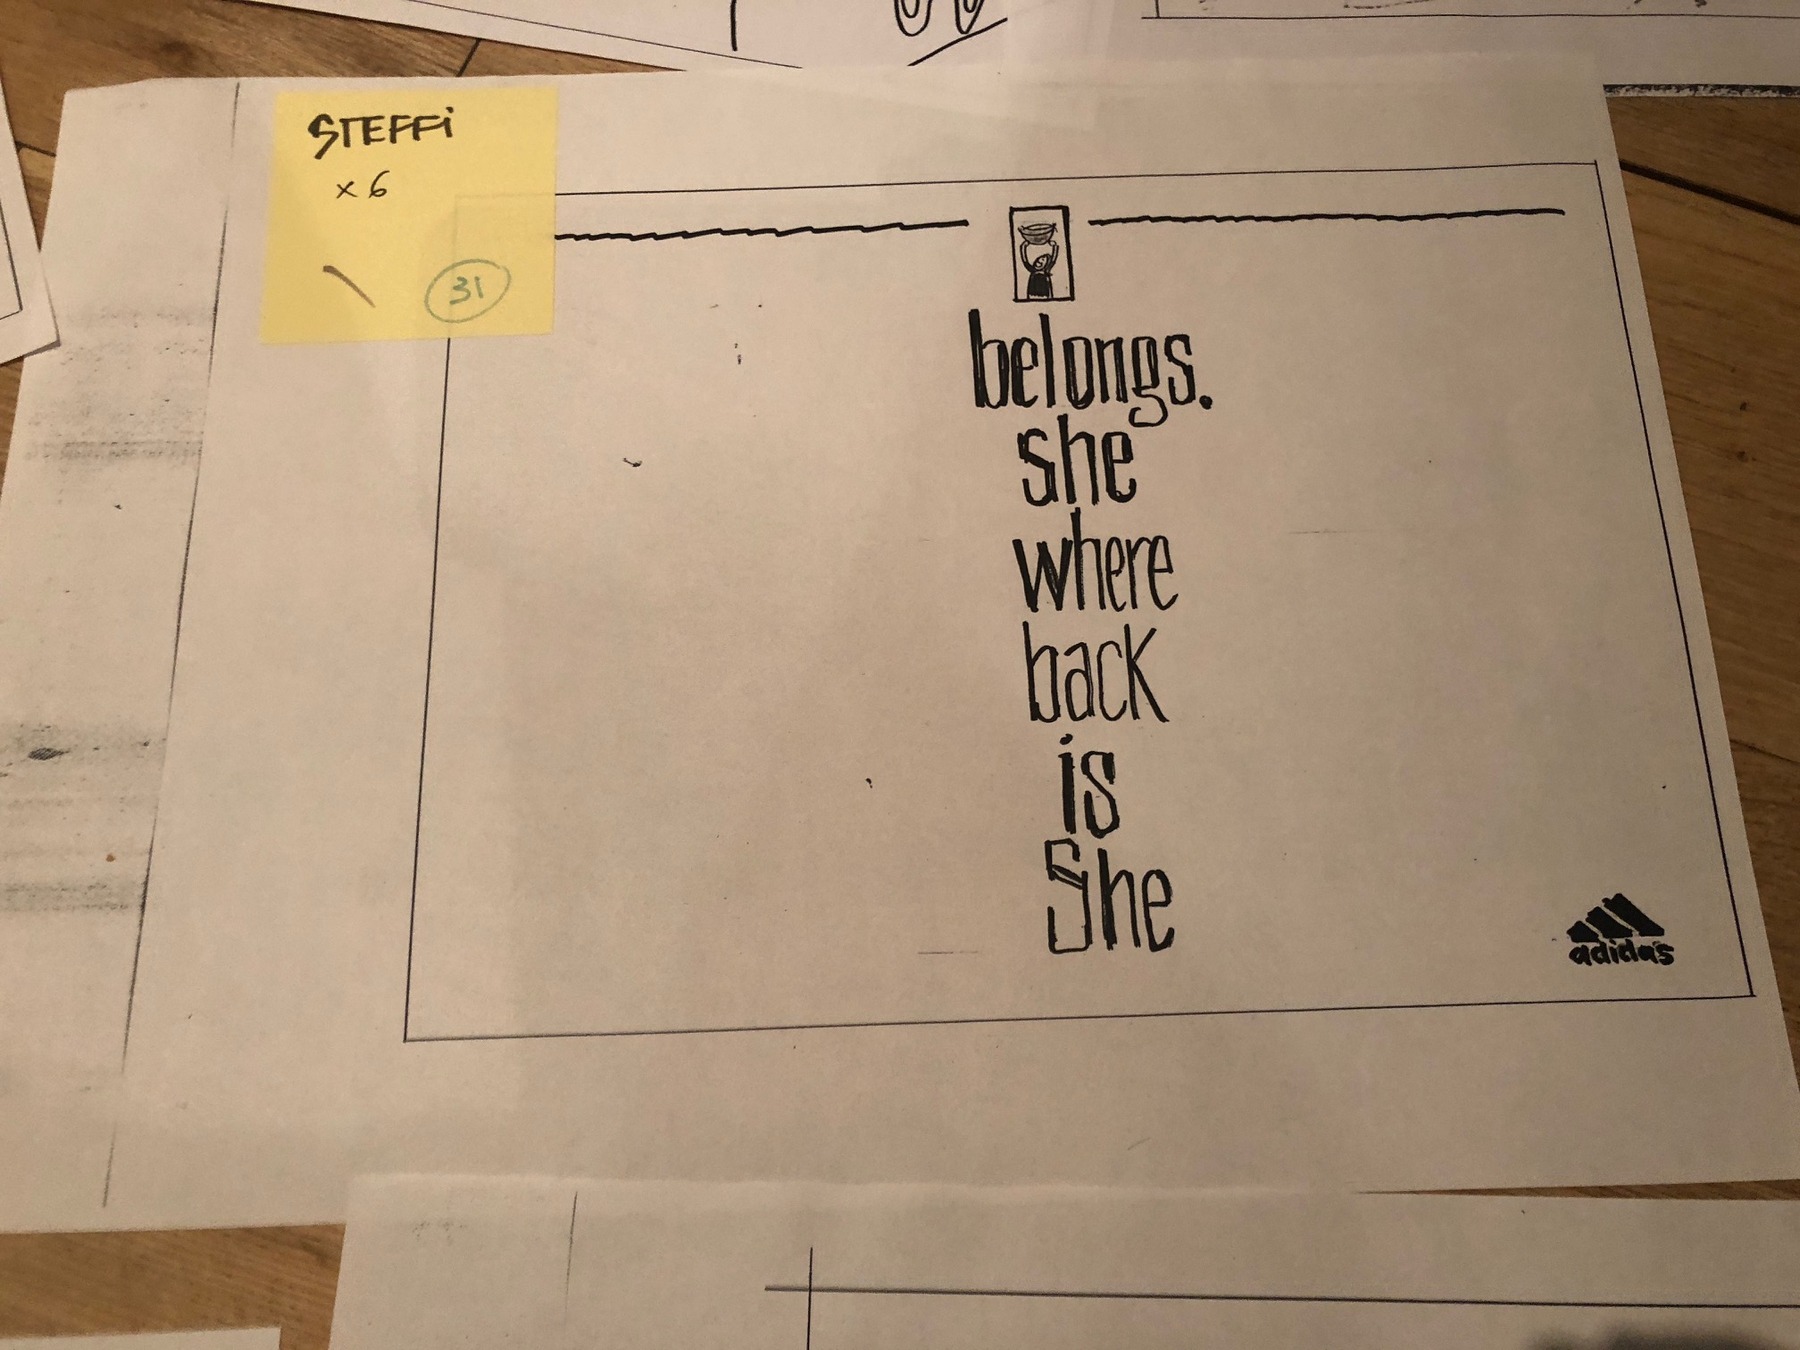 STEFFi
x 6
31
belongs.
she
where
back
is
She
adidas